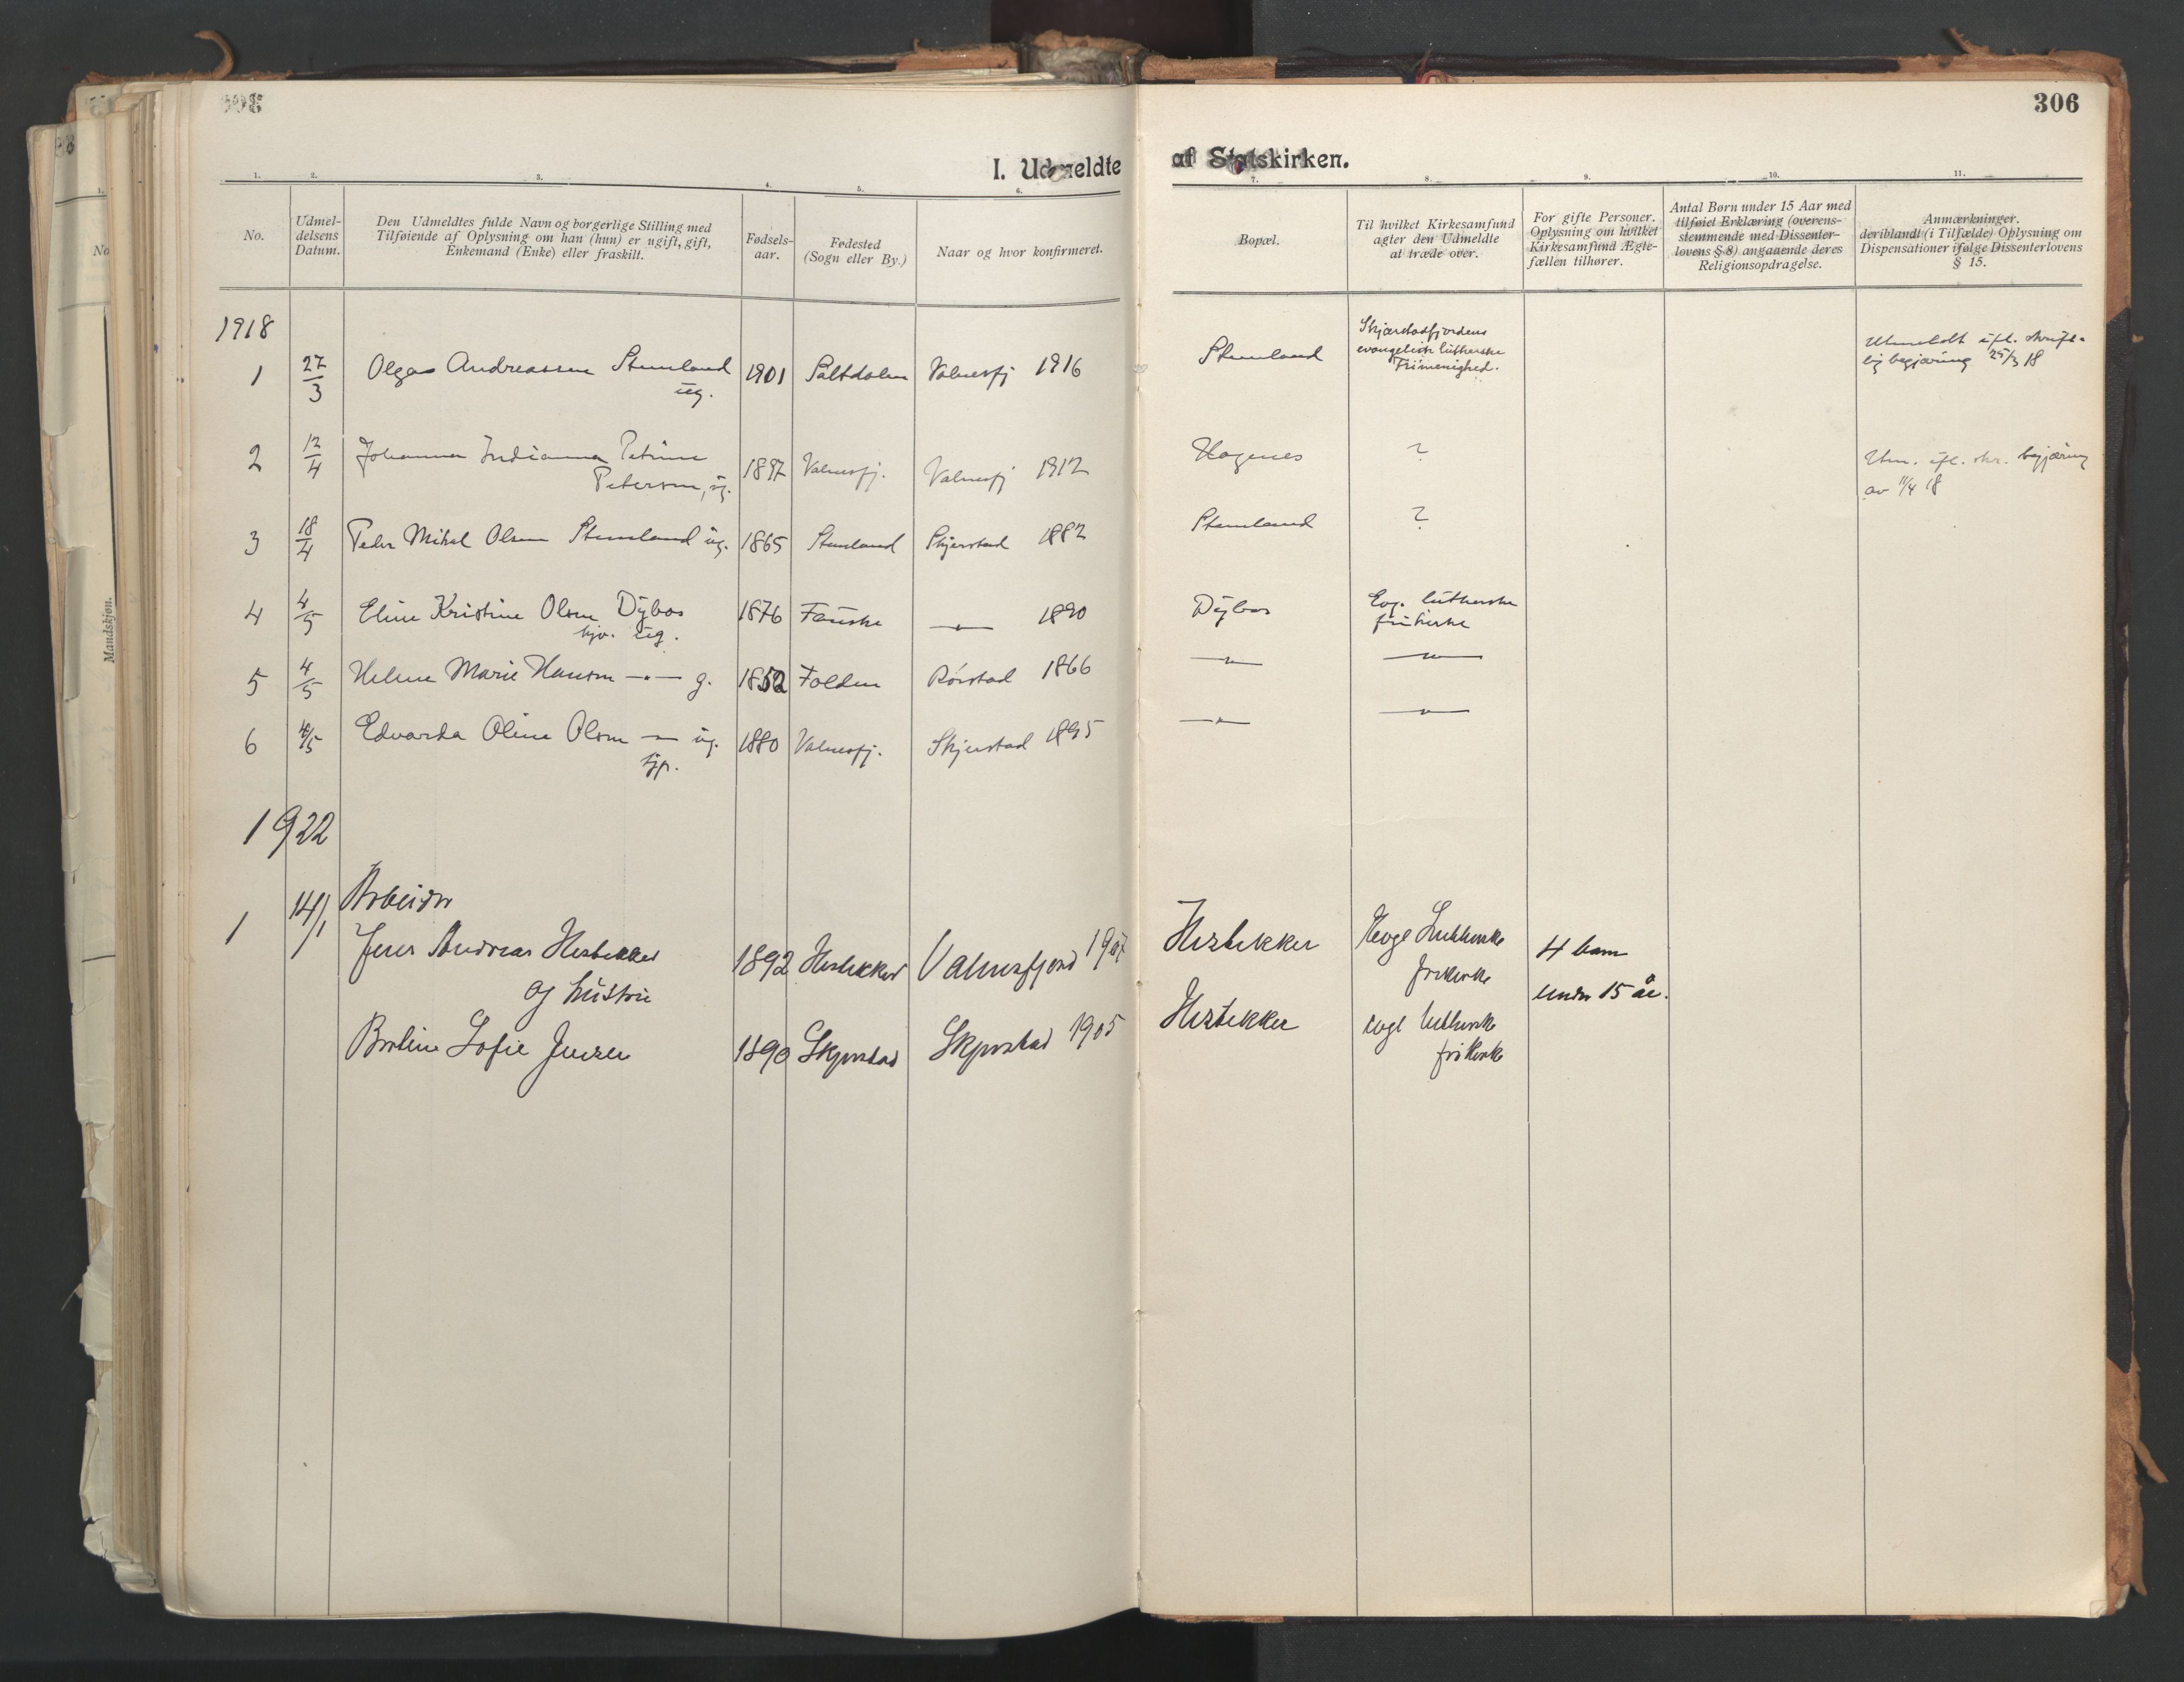 306
I. Udmeldte af Statskirken.
1. 2. 3. 4. 5. 6. 7. 8. 9. 10. 11.
No.
Udmel-
delsens
Datum.
Den Udmeldtes fulde Navn og borgerlige Stilling med
Tilføiende af Oplysning om han (hun) er ugift, gift,
Enkemand (Enke) eller fraskilt.
Fødsels-
aar.
Fødested
(Sogn eller By.)
Naar og hvor konfirmeret.
Bopæl.
Til hvilket Kirkesamfund
agter den Udmeldte
at træde over.
For gifte Personer.
Oplysning om hvilket
Kirkesamfund Ægte-
fællen tilhører.
Antal Børn under 15 Aar med
tilføiet Erklæring (overens-
stemmende med Dissenter-
lovens § 8) angaaende deres
Religionsopdragelse.
Anmærkninger.
deriblandt (i Tilfælde) Oplysning om
Dispensationer ifølge Dissenterlovens
§ 15.
1918
1 27/3 Olga Andreassen Stemland ug. 1901 Saltdalen Valnesfj 1916 Stemland
Skjærstadfjordens
evangelisk lutherske
Frimenighed.
Utmeldt ifl. skrift-
lig begjæring 25/3 18
2 12/4 Johanna Indianna Petrine
Petersen, ug. 1897 Valnesfj. Valnesfj 1912 Hagenes ?
Utm. ifl. skr. begjæring
av 11/4 18
3 18/4 Peder Mikal Olsen Stemland ug. 1865 Stemland Skjerstad 1882 Stemland ?
4 4/5 Eline Kristine Olsen Dybos 1876 Fauske —"— 1890 Dybos Evg. lutherske
ug. frikirke
5 4/5 Helene Marie Hansen —"— g. 1852 Folden Rörstad 1866 —"— —"—
6 4/5 Edvarda Oline Olsen —"— ug. 1880 Valnesfj. Skjerstad 1895 —"— —"—
1922
1 14/1 Arbeider
Jens Andreas Hestekker 1892 Hestekker Valnesfjord 1907 Hestekker Evgl Lutherske 4 barn
og hustru frikirke under 15 år.
Broline Sofie Jensen 1890 Skjerstad Skjerstad 1905 Hestekker evgl lutherske
frikirke
No
Mandskjøn.